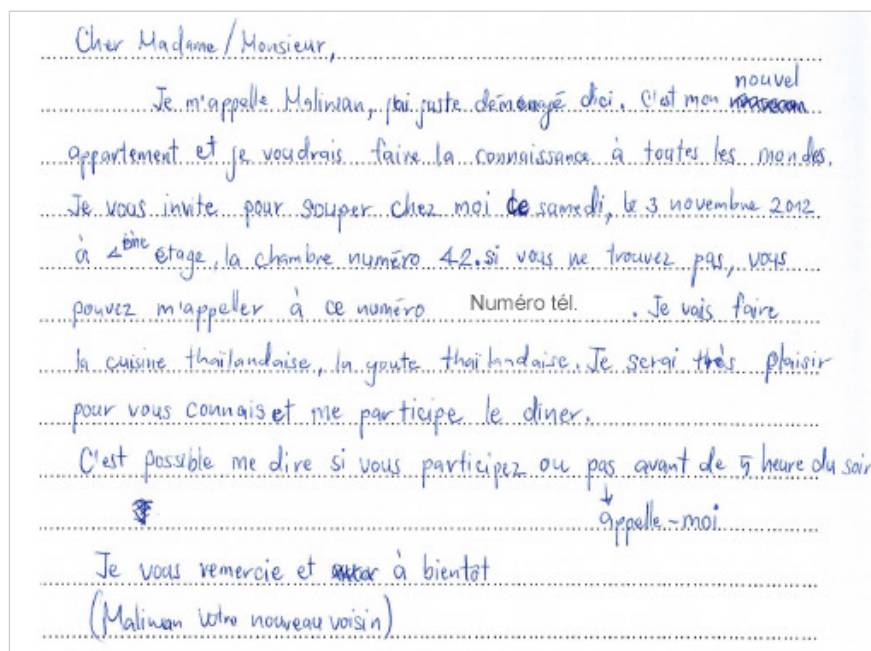 Cher Madame/Monsieur,
Je m'appelle Maliwan, j'ai juste déménagé d'ici. C'est mon nouvel
appartement et je voudrais faire la connaissance à toutes les mondes.
Je vous invite pour souper chez moi ce samedi, le 3 novembre 2012
à 4ème étage, la chambre numéro 42. si vous ne trouvez pas, vous
pouvez m'appeller à ce numéro Numéro tél. . Je vais faire
la cuisine thaïlandaise, la goute thaïlandaise. Je serai très plaisir
pour vous connais et me participe le dîner.
C'est possible me dire si vous participez ou pas avant de 5 heure du soir
appelle-moi
Je vous remercie et à bientôt
(Maliwan votre nouveau voisin)